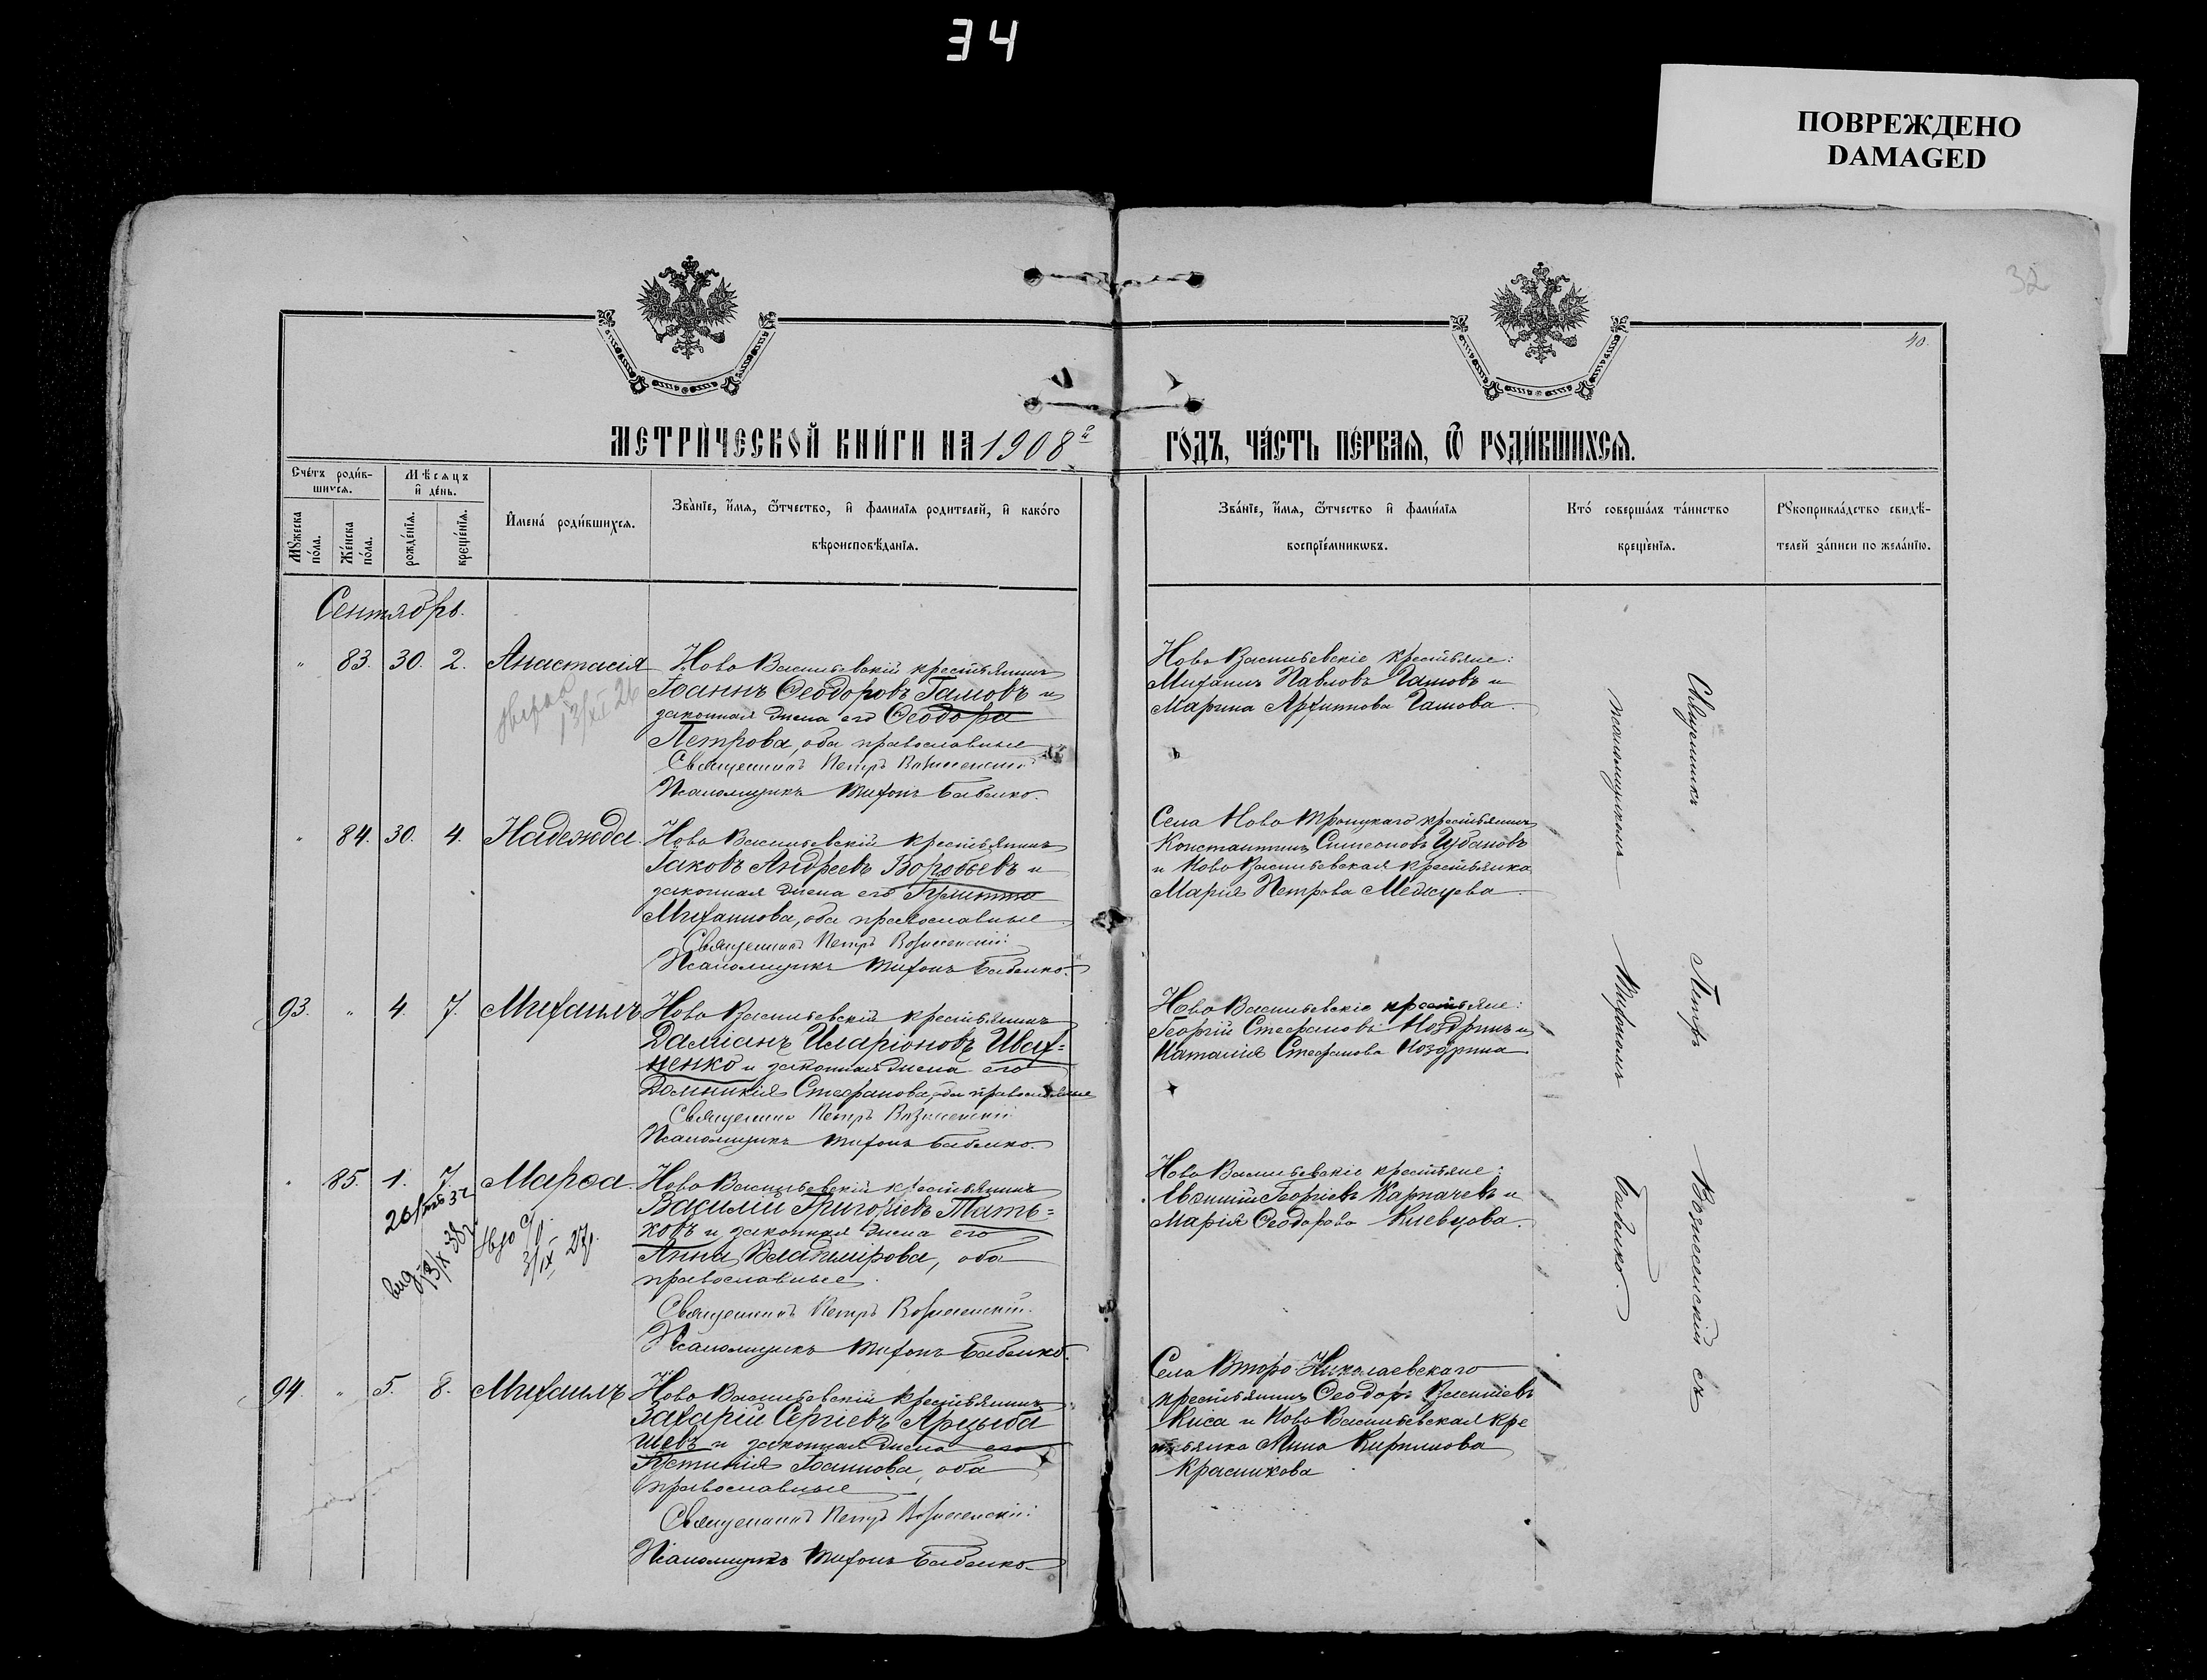 34
ПОВРЕЖДЕНО
DAMAGED
32
40.
МЕТРИЧЕСКОЙ КНИГИ НА 1908й
ГОДЪ, ЧАСТЬ ПЕРВАЯ, Ѿ РОДИВШИХСЯ.
Счетъ родив-
шихся.
Мѣсяцъ
и день.
Мужеска
пола.
Женска
пола.
рожденія.
крещенія.
Имена родившихся.
Званіе, имя, ѿтчество, и фамилія родителей, и какого
вѣроисповѣданія.
Званіе, имя, ѿтчество и фамилія
воспріемниковъ.
Кто совершалъ таинство
крещенія.
Рукоприкладство свидѣ-
телей записи по желанію.
Сентябрь.
" 83. 30. 2. Анастасія
13/XI 26
Ново Васильевскій крестьянинъ
Іоаннъ Ѳеодоровъ Гамовъ и
законная жена его Ѳеодора
Петрова, оба православные
Священникъ Петръ Вознесенскій
Псаломщикъ Тихонъ Бабенко.
Ново Васильевскіе крестьяне:
Михаилъ Павловъ Гамовъ и
Марина Архиппова Гамова.
" 84. 30. 4. Надежда.
Ново Васильевскій крестьянинъ
Іаковъ Андреевъ Воробьевъ и
законная жена его
Михаилова, оба православные
Священникъ Петръ Вознесенскій
Псаломщикъ Тихонъ Бабенко.
Села Ново Троицкаго крестьянинъ
Константинъ Симеоновъ Чубановъ
и Ново Васильевская крестьянка
Марія Петрова
93. " 4. 7. Михаилъ
Ново Васильевскій крестьянинъ
Даміанъ Иларіоновъ Ивах=
ненко и законная жена его
Домникія Стефанова, оба православные
Священникъ Петръ Вознесенскій
Псаломщикъ Тихонъ Бабенко.
Ново Васильевскіе крестьяне:
Георгій Стефановъ Ноздринъ и
Наталія Стефанова Ноздрина.
" 85. 1. 7. Марѳа.
3/IX 27г.
Ново Васильевскій крестьянинъ
Василій Григоріевъ Пать=
ковъ и законная жена его
Анна Владимірова, оба
православные.
Священникъ Петръ Вознесенскій.
Псаломщикъ Тихонъ Бабенко.
Ново Васильевскіе крестьяне:
Евѳимій Георгіевъ Карпачевъ и
Марія Ѳеодорова Киевцова.
94. " 5. 8. Михаилъ
Ново Васильевскій крестьянинъ
Захарій Сергіевъ Арцыба
шевъ и законная жена его
Іустинія Іоаннова, оба
православные
Священникъ Петръ Вознесенскій
Псаломщикъ Тихонъ Бабенко
Села Второ-Николаевскаго
крестьянинъ Ѳеодоръ Василіевъ
Киса и Ново Васильевская кре
стьянка Анна Кириллова
Красникова
Священникъ Петръ Вознесенскій съ
псаломщикомъ Тихономъ Бабенко.